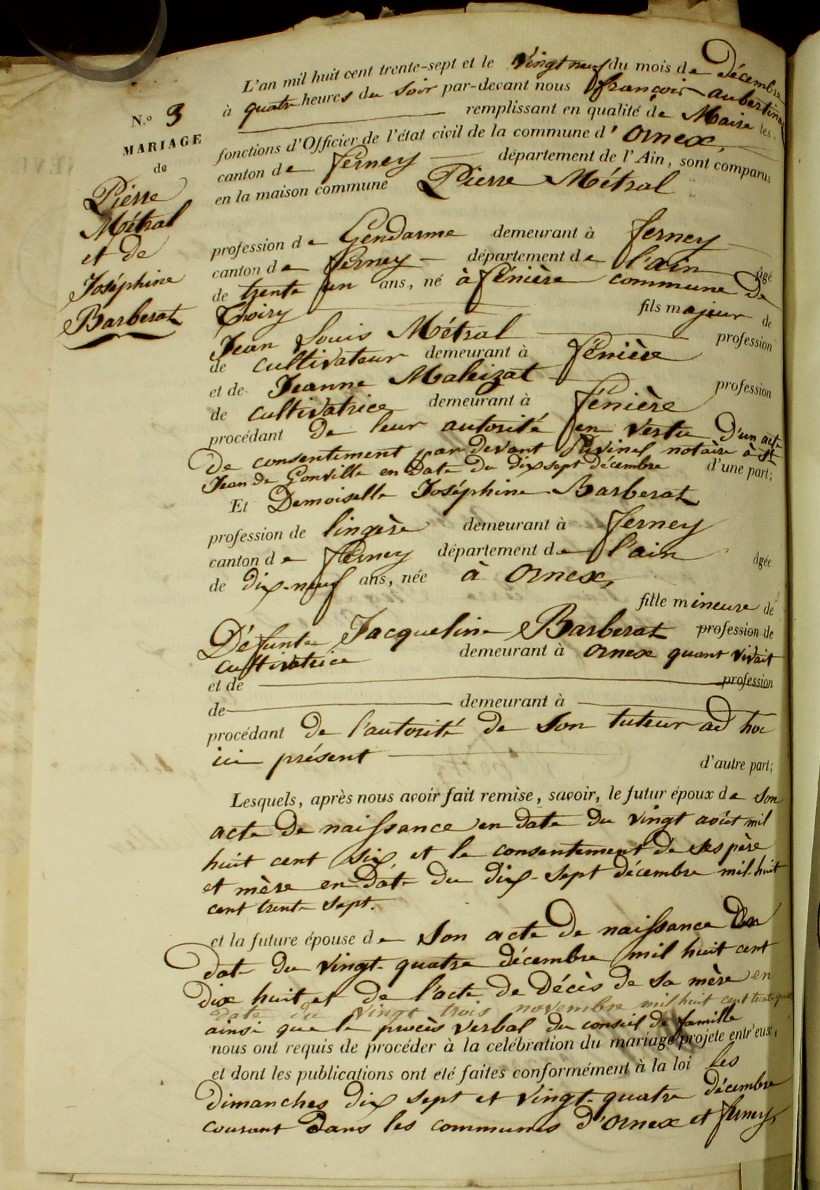 N.º 3
MARIAGE
de
Pierre
Métral
et de
Joséphine
Barberat
L'an mil huit cent trente-sept et le vingt neuf du mois de décembre
à quatre heures du soir par-devant nous françois aubertin
remplissant en qualité de Maire les
fonctions d'Officier de l'état civil de la commune d'Ornex,
canton de ferney département de l'Ain, sont comparus
en la maison commune Pierre Métral
profession de Gendarme demeurant à ferney
canton de ferney département de l'ain âgé
de trente un ans, né à fénière commune De
Thoiry fils majeur de
Jean Louis Métral profession
de cultivateur demeurant à fénière
et de Jeanne profession
de cultivatrice demeurant à fénière
procédant de leur autorité en vertu d'un acte
de consentement par devant notaire à St
Jean de Gonville en date du dix sept décembre d'une part;
Et Demoiselle Joséphine Barberat
profession de lingère demeurant à ferney
canton de ferney département de l'ain âgée
de dix-neuf ans, née à Ornex,
fille mineure de
Défunte Jacqueline Barberat profession de
cultivatrice demeurant à Ornex quant vivait
et de profession
de demeurant à
procédant de l'autorité de son tuteur ad hoc
ici présent d'autre part;
Lesquels, après nous avoir fait remise, savoir, le futur époux de son
acte de naissance en date du vingt août mil
huit cent six, et le consentement de ses père
et mère en date du dix-sept décembre mil-huit
cent trente sept.
et la future épouse de son acte de naissance En
date du vingt-quatre décembre mil huit cent
dix huit et de l'acte de décès de sa mère en
date du vingt trois novembre mil huit cent
ainsi que le procès verbal du conseil de famille
nous ont requis de procéder à la celébration du mariage projete entr'eux,
et dont les publications ont été faites conformément à la loi les
dimanches dix sept et vingt-quatre décembre
courant dans les communes d'Ornex et ferney,